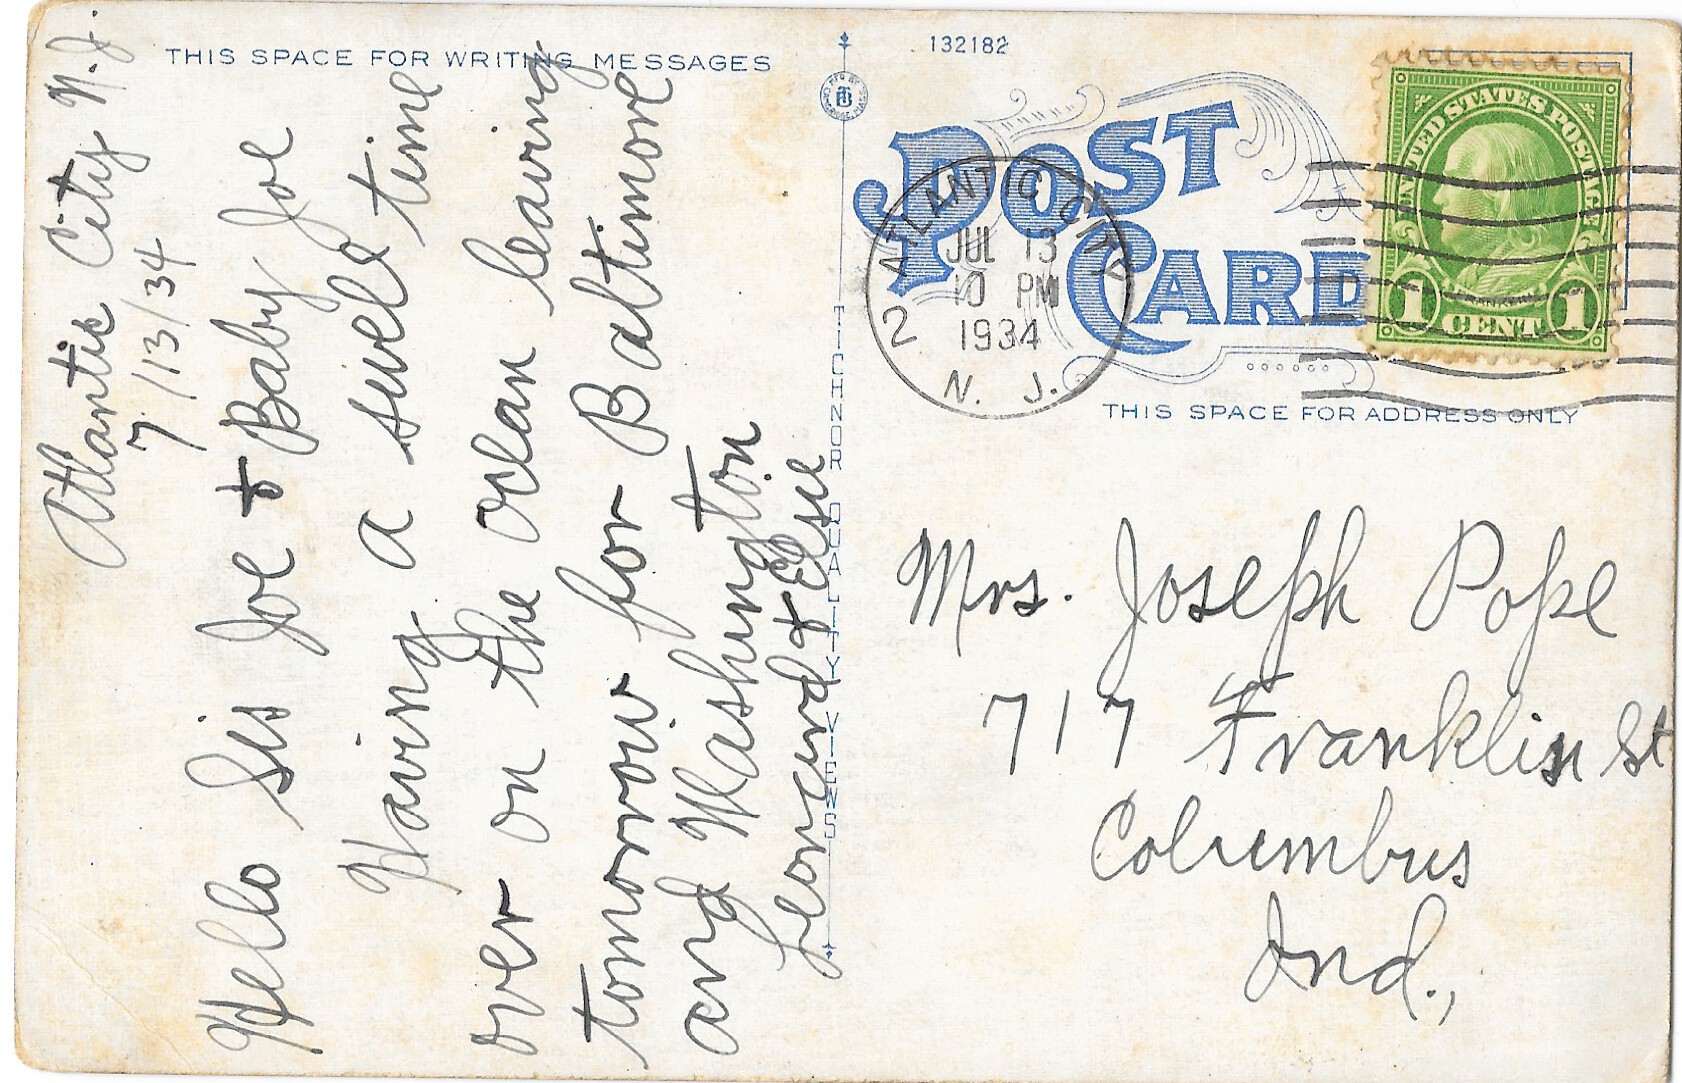 THIS SPACE FOR WRITING MESSAGES
Atlantic City N.J.
7/13/34
Hello Sis Joe + Baby Joe
Having a swell time
over on the ocean leaving
tomorrow for Baltimore
and Washington
Leonard + Elsie
TICHNOR QUALITY VIEWS
132182
POST CARD
ATLANTIC CITY
JUL 13
10 PM
1934
2
N. J.
UNITED STATES POSTAGE
FRANKLIN
1 CENT 1
THIS SPACE FOR ADDRESS ONLY
Mrs. Joseph Pope
717 Franklin St
Columbus
Ind.,